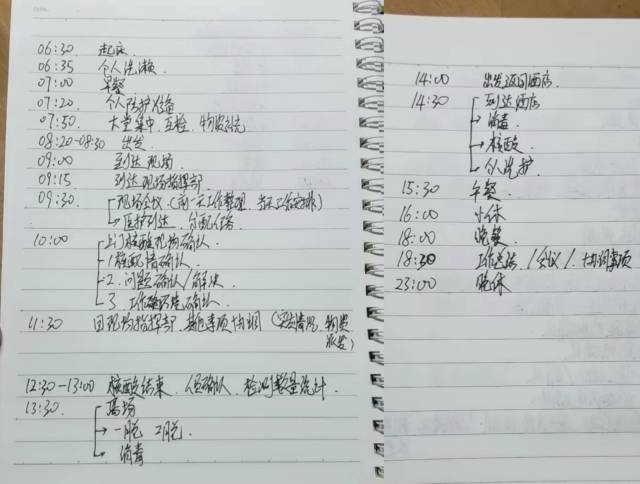 06:30 起床.
06:35 个人洗漱
07:00 早餐
07:20 个人防护准备
07:50. 大堂集中, 互检, 物资
08:20-08:30 出发.
09:00 到达现场
09:15 到达现场指挥部.
09:30. 现场会议 (前一天工作整理, 当天工作安排)
→ 医护到达, 分配任务
10:00 上门核酸现场确认.
1 情确认.
2. 问题确认/解决
3. 工作确认.
11:30 回现场指挥部. 事项协调 (情况, 物资
收发)
12:30-13:00 核酸结束, 人员确认, 检测数量统计.
13:30. 离场
→ 一脱 2脱.
→ 消毒
14:00 出发返回酒店.
14:30 到达酒店
→ 消毒.
→ 核酸
→ 个人洗护
15:30 午餐
16:00 小休
18:00 晚餐
18:30 工作总结/会议/. 协调事项
23:00 晚休